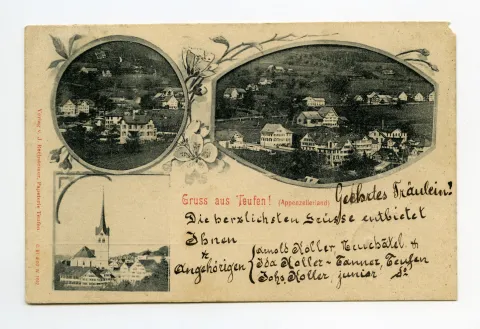 Gruss aus Teufen! (Appenzellerland)
Geehrtes Fräulein!
Die herzlichsten Grüsse entbietet
Ihnen
& Angehörigen
Arnold Koller, Neuchâtel &
Ida Koller-Tanner, Teufen
Johs Koller, junior
Verlag v. J. Papeterie Teufen.